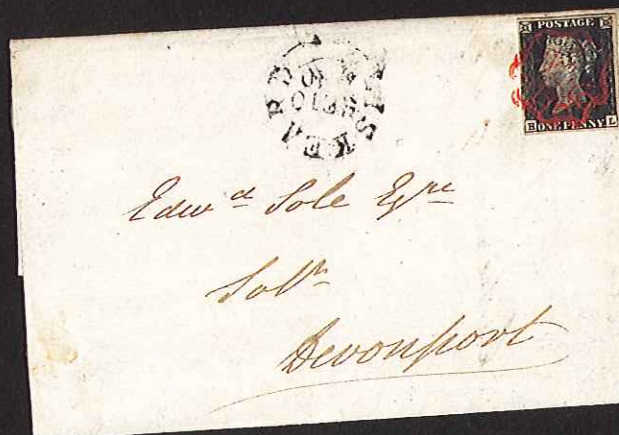 POSTAGE
B ONE PENNY L
LISKEARD
Edwd Sole Esqre
Solr
Devonport